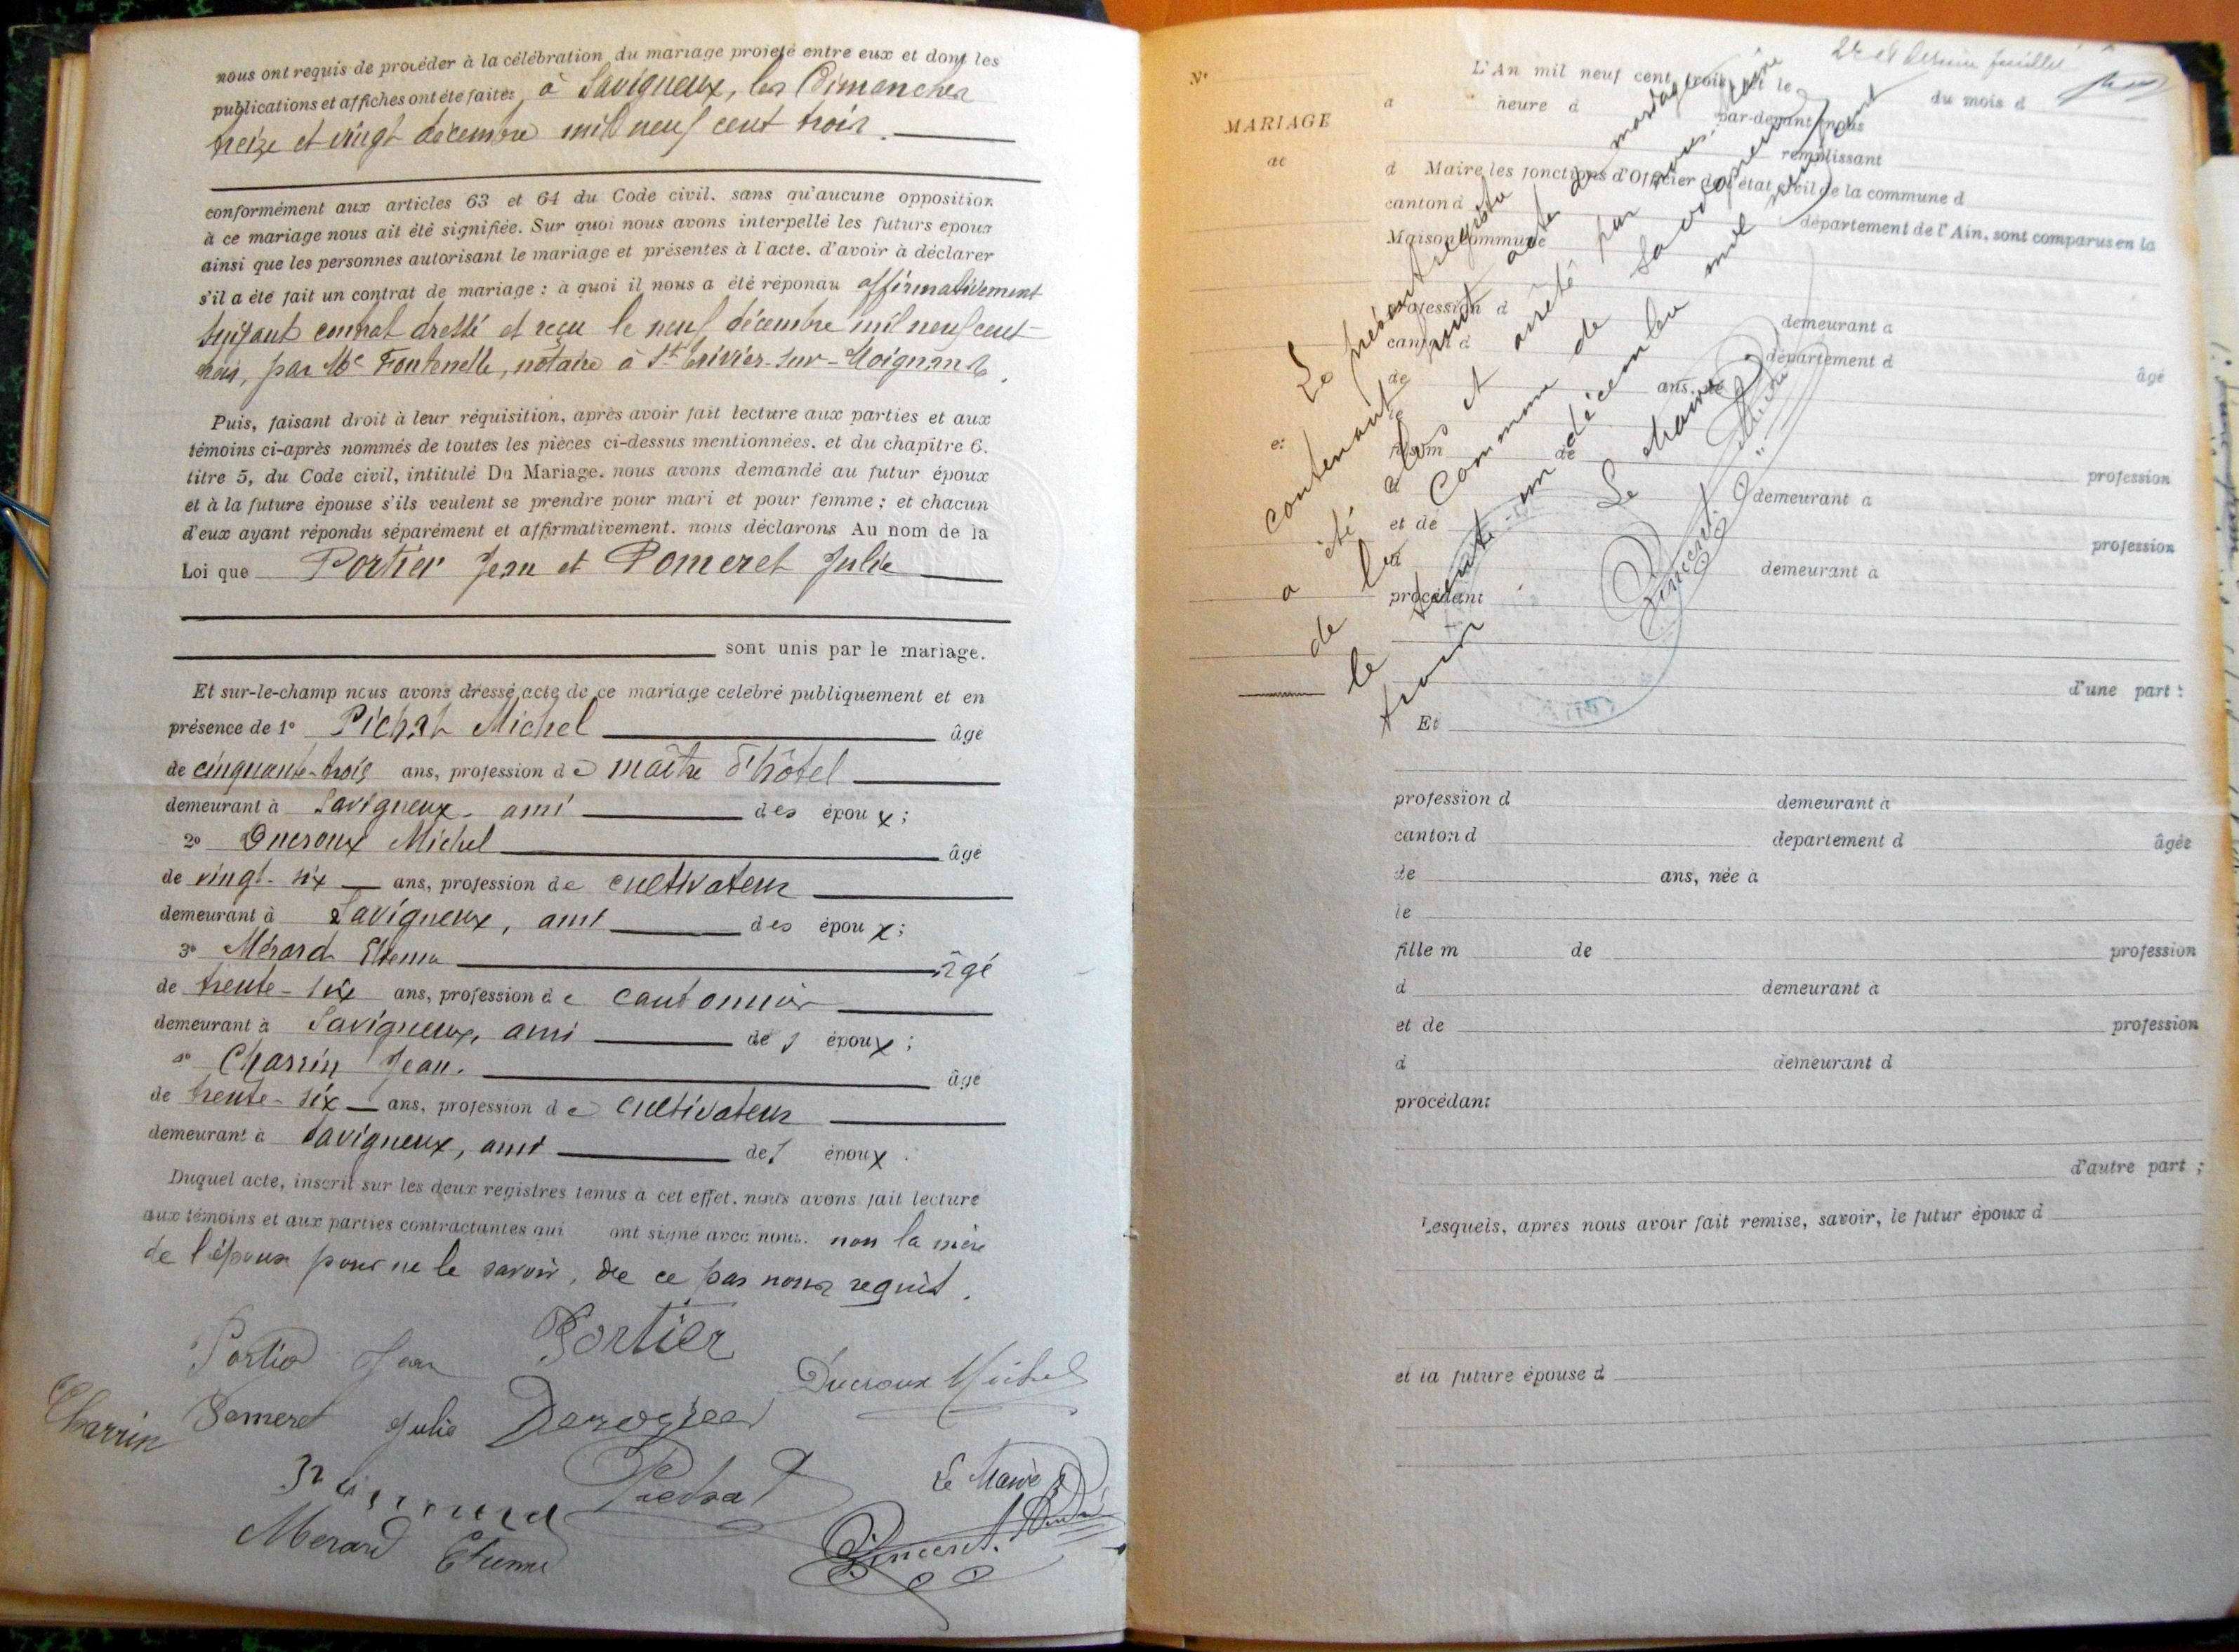 nous ont requis de procéder à la célébration du mariage projeté entre eux et dont les
publications et affiches ont été faites à Savigneux, les Dimanches
treize et vingt décembre mil neuf cent trois.
conformément aux articles 63 et 64 du Code civil, sans qu'aucune opposition
à ce mariage nous ait été signifiée. Sur quoi nous avons interpellé les futurs epoux
ainsi que les personnes autorisant le mariage et présentes à l'acte, d'avoir à déclarer
s'il a été fait un contrat de mariage : à quoi il nous a été répondu affirmativement
suivant contrat dressé et reçu le neuf décembre mil neuf cent
trois, par Me Fontenelle, notaire à St Trivier-sur-Moignans.
Puis, faisant droit à leur réquisition, après avoir fait lecture aux parties et aux
témoins ci-après nommés de toutes les pièces ci-dessus mentionnées, et du chapitre 6,
titre 5, du Code civil, intitulé Du Mariage, nous avons demandé au futur époux
et à la future épouse s'ils veulent se prendre pour mari et pour femme ; et chacun
d'eux ayant répondu séparément et affirmativement, nous déclarons Au nom de la
Loi que Portier Jean et Pomeret Julie
sont unis par le mariage.
Et sur-le-champ nous avons dressé acte de ce mariage celébré publiquement et en
présence de 1° Pichat Michel âgé
de cinquante-trois ans, profession de maître d'hôtel
demeurant à Savigneux, ami des époux ;
2° Ducroux Michel âgé
de vingt-six ans, profession de cultivateur
demeurant à Savigneux, ami des époux ;
3° Mérard Etienne âgé
de trente-six ans, profession de cantonnier
demeurant à Savigneux, ami des époux ;
4° Charrin Jean. âgé
de trente-six ans, profession de cultivateur
demeurant à Savigneux, ami des époux.
Duquel acte, inscrit sur les deux registres tenus à cet effet, nous avons fait lecture
aux témoins et aux parties contractantes qui ont signé avec nous. non la mère
de l'époux pour ne le savoir, de ce par nous requis.
Portier Jean Portier
Ducroux Michel
Charrin Pomeret Julie
Pichat
Le Maire
Merard Etienne
Vincent André
2e et dernier feuillet
N°
L'An mil neuf cent trois et le du mois d
MARIAGE
a heure d par-devant nous
de
remplissant
d Maire les fonctions d'Officier de l'état civil de la commune d
canton d département de l'Ain, sont comparus en la
Maison commune
profession d demeurant a
canton d département d âgé
de ans, né
le
et
fils m de profession
d demeurant a
et de profession
d demeurant a
procédant
d'une part :
Le présent registre
contenant huit actes de mariage
a été clos et arrêté par nous, Maire
de la Commune de Savigneux
le trente-un décembre mil neuf cent
trois
Le Maire
Vincent André
Et
profession d demeurant à
canton d departement d âgée
de ans, née à
le
fille m de profession
d demeurant a
et de profession
d demeurant d
procédant
d'autre part ;
Lesquels, apres nous avoir fait remise, savoir, le futur époux d
et la future épouse d